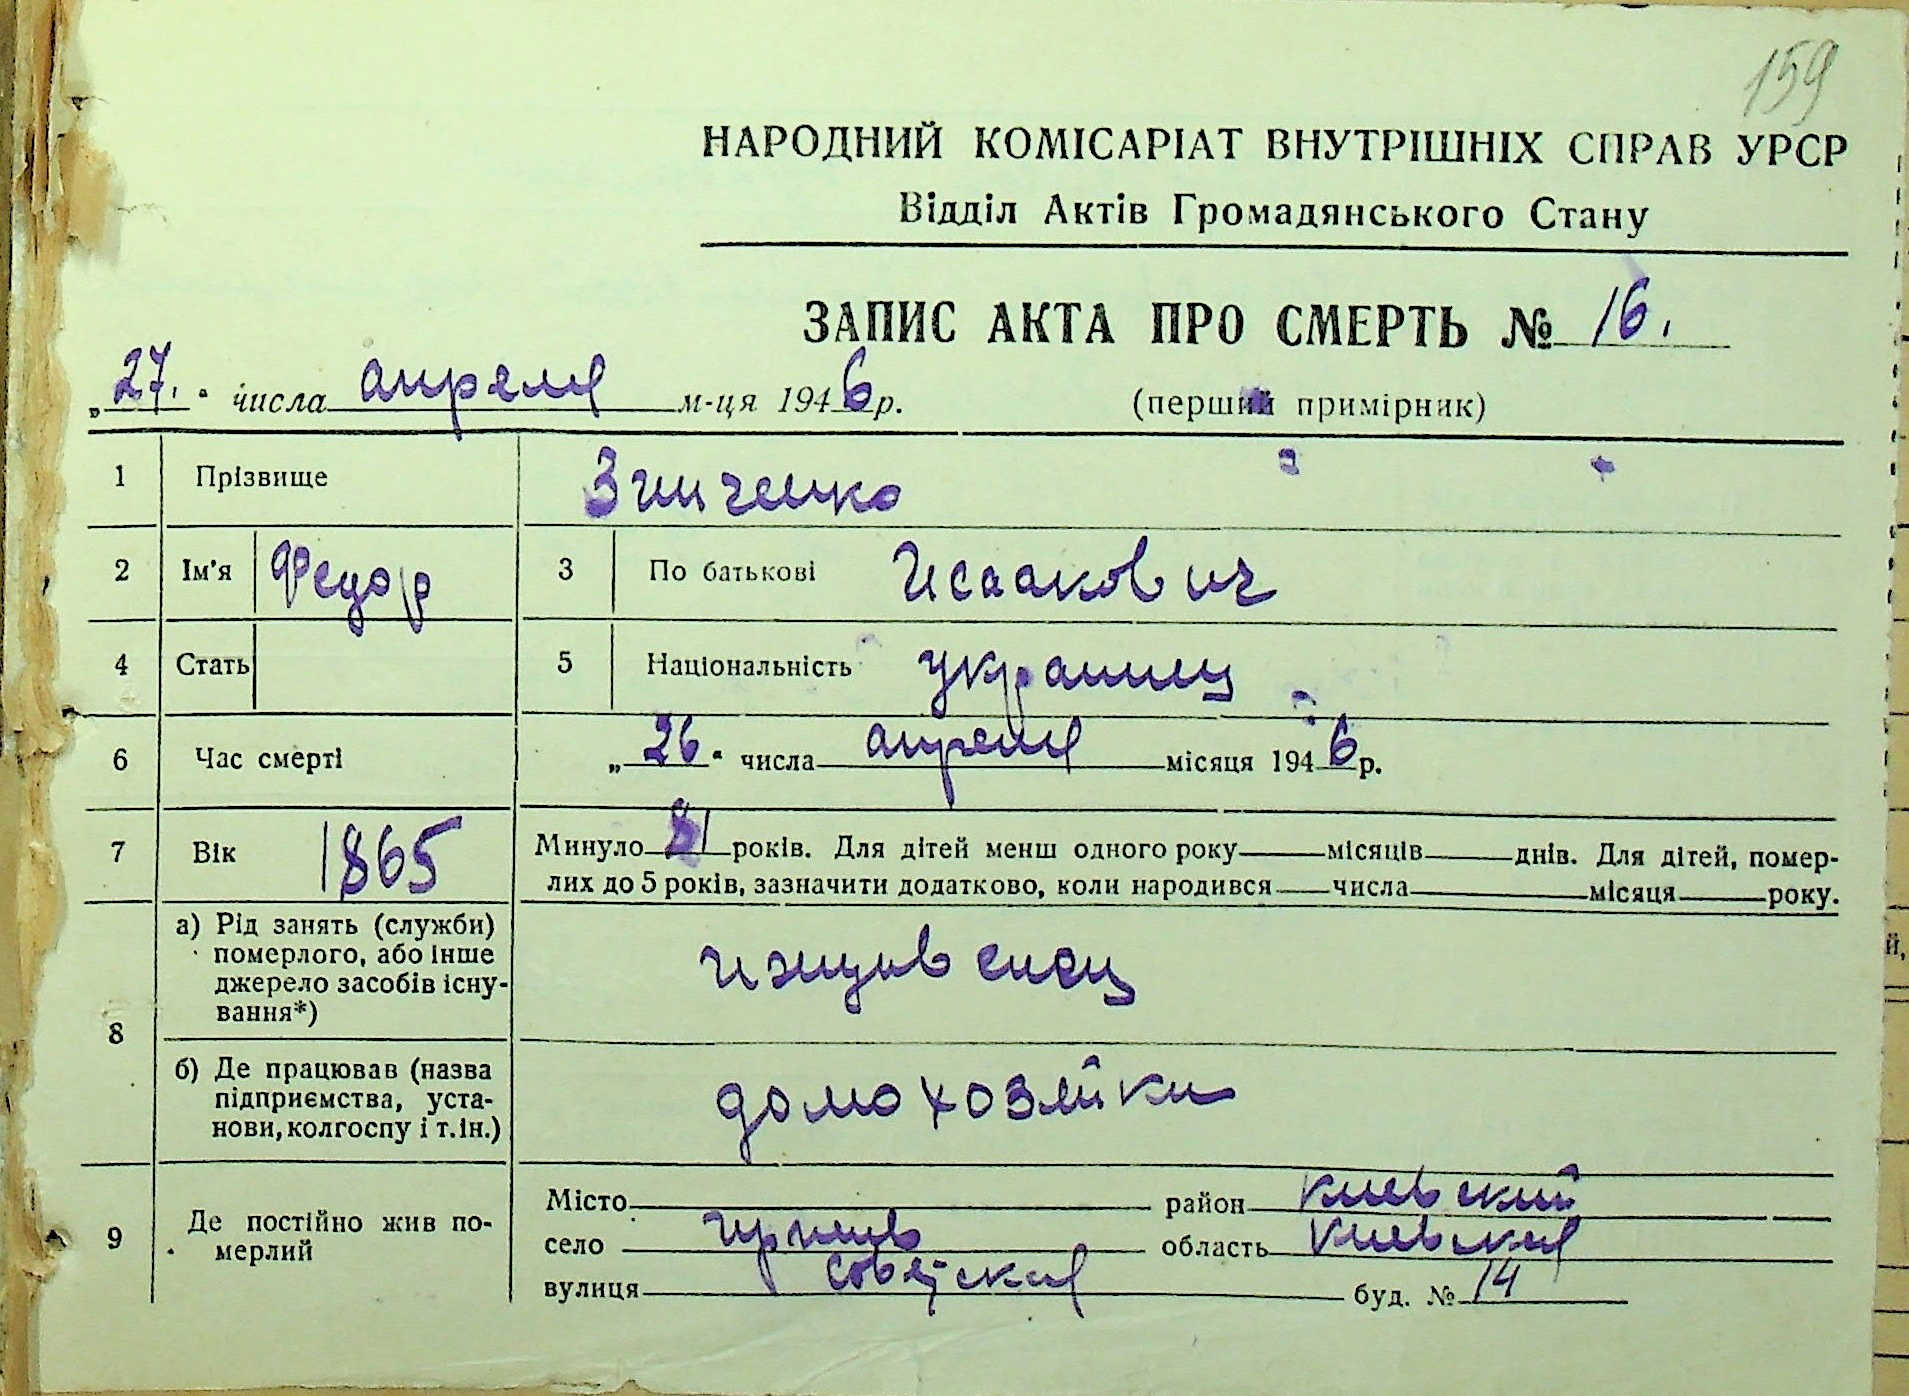 159
НАРОДНИЙ КОМІСАРІАТ ВНУТРІШНІХ СПРАВ УРСР
Відділ Актів Громадянського Стану
ЗАПИС АКТА ПРО СМЕРТЬ № 16.
„27." числа апреля м-ця 1946 р.
(перший примірник)
1 Прізвище Зинченко
2 Ім'я Федор 3 По батькові Исаакович
4 Стать 5 Національність украинец
6 Час смерті „26" числа апреля місяця 1946 р.
7 Вік 1865 Минуло 81 років. Для дітей менш одного року місяців днів. Для дітей, помер-
лих до 5 років, зазначити додатково, коли народився числа місяця року.
8 а) Рід занять (служби)
померлого, або інше
джерело засобів існу-
вання*)
иждивенец
б) Де працював (назва
підприємства, уста-
нови, колгоспу і т.ін.)
домохозяйки
9 Де постійно жив по-
мерлий
Місто район Киевский
село область Киевская
вулиця Советская буд. № 14